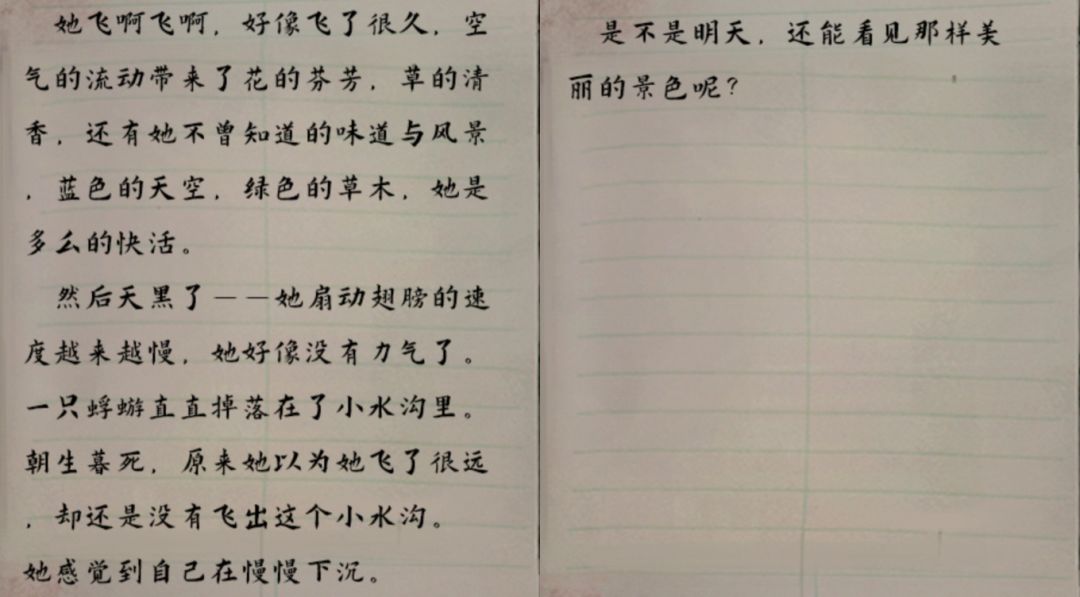 她飞啊飞啊，好像飞了很久，空
气的流动带来了花的芬芳，草的清
香，还有她不曾知道的味道与风景
，蓝色的天空，绿色的草木，她是
多么的快活。
然后天黑了——她扇动翅膀的速
度越来越慢，她好像没有力气了。
一只蜉蝣直直掉落在了小水沟里。
朝生暮死，原来她以为她飞了很远
，却还是没有飞出这个小水沟。
她感觉到自己在慢慢下沉。
是不是明天，还能看见那样美
丽的景色呢？